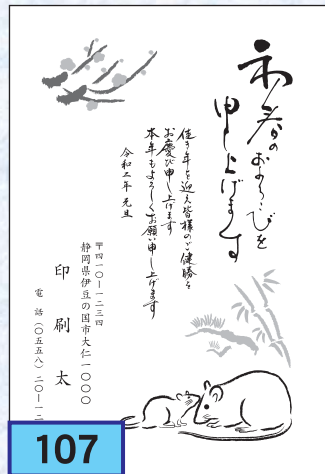 初春のおよろこびを
申し上げます
佳き年を迎え皆様のご健勝を
お慶び申し上げます
本年もよろしくお願い申し上げます
令和二年元旦
〒四一〇ー一二三四
静岡県伊豆の国市大仁一〇〇〇
印刷太
電話(〇五五八)二〇ー一二
107